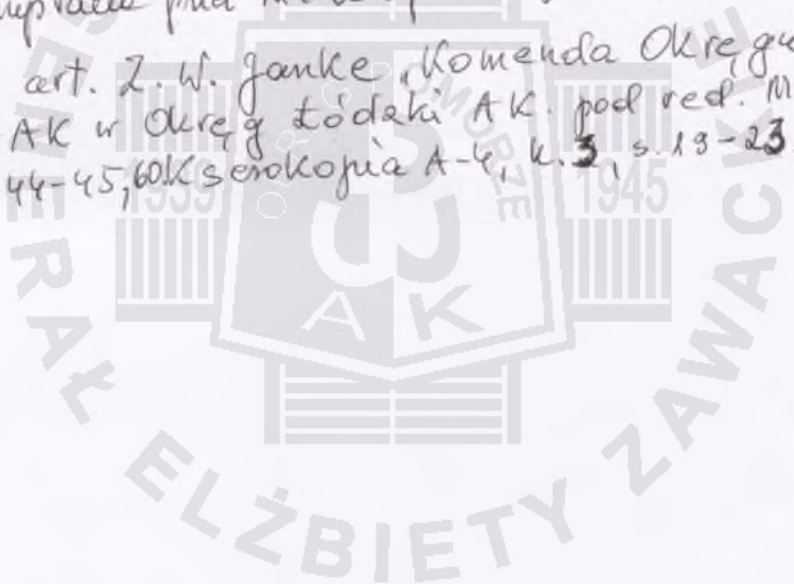 art. Z. W. Janke „Komenda Okręgu
AK w Okręg Łódzki AK. pod red. M
44-45,60. Kserokopia A-4, k. 3, s. 19-23
1939 1945
AK
GENERAŁ ELŻBIETY ZAWACKIEJ
POMORZE